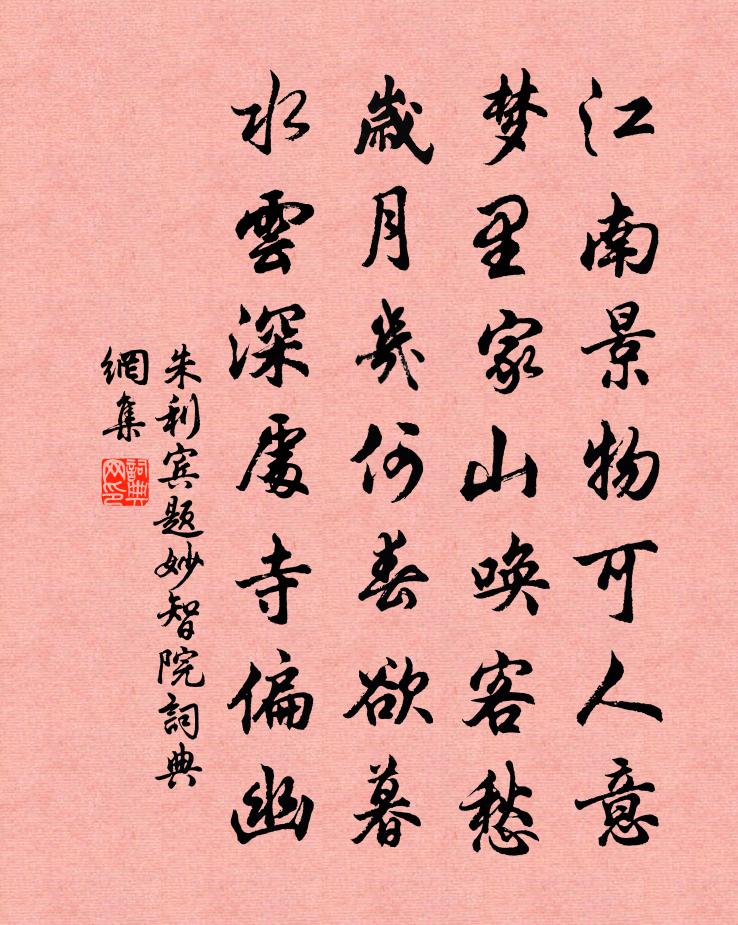 江南景物可人意
梦里家山唤客愁
歲月幾何春欲暮
水雲深處寺偏幽
朱利宾题妙智院詞典
網集
詞典
网印